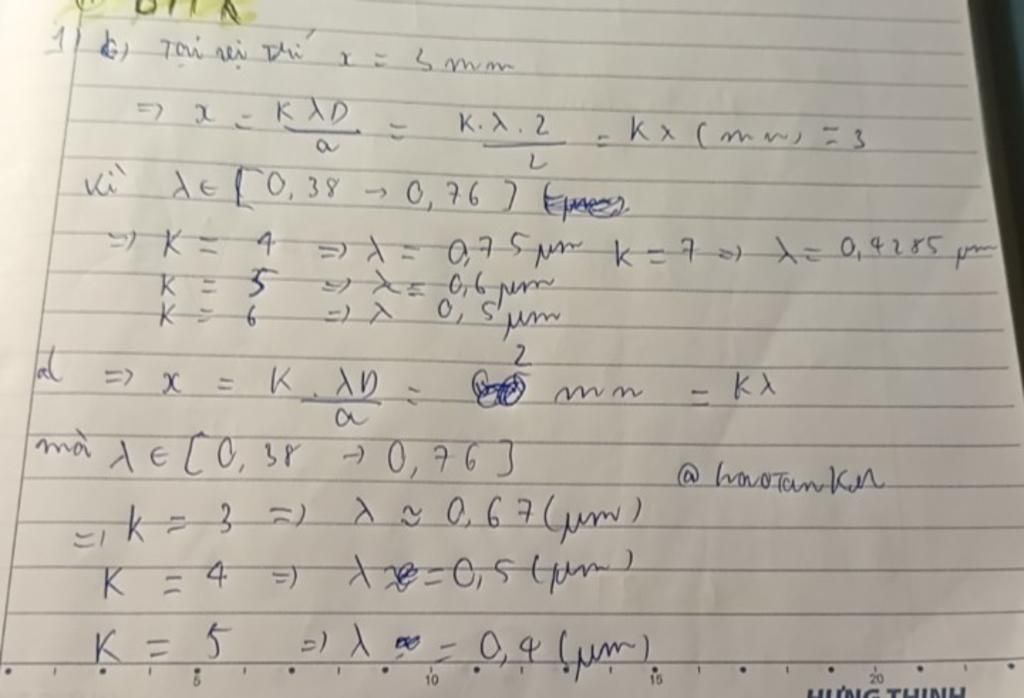 BTTR
1) b) Tại vị trí x = 3 mm
=> x = KλD/a = K.λ.2/2 = Kλ (mm) = 3
Vì λ ∈ [0,38 → 0,76]
=> K = 4 => λ = 0,75 μm K = 7 => λ = 0,4285 μm
K = 5 => λ = 0,6 μm
K = 6 => λ 0,5 μm
d => x = K.λD/a = 2 mm = Kλ
mà λ ∈ [0,38 → 0,76]
@
=> K = 3 => λ ≈ 0,67 (μm)
K = 4 => λ = 0,5 (μm)
K = 5 => λ = 0,4 (μm)
5 10 15 20
HƯNG THỊNH